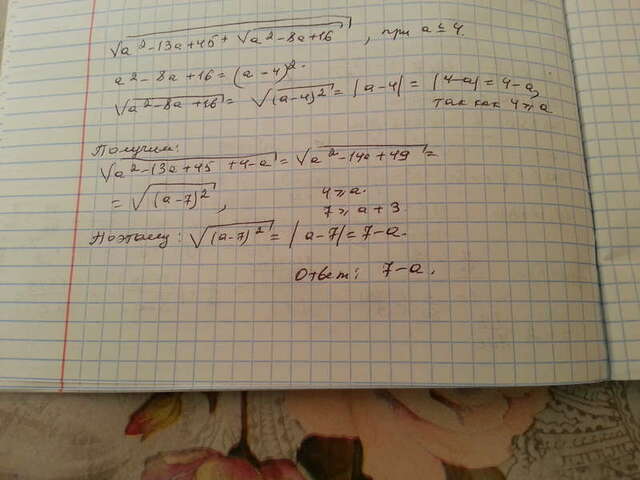 √(a²-13a+45+√(a²-8a+16)), при a≤4.
a²-8a+16=(a-4)².
√(a²-8a+16)=√((a-4)²)=|a-4|=|4-a|=4-a,
так как 4≥a
Получим:
√(a²-13a+45+4-a)=√(a²-14a+49)=
=√((a-7)²), 4≥a.
7≥a+3
Поэтому: √((a-7)²)=|a-7|=7-a.
Ответ: 7-a.